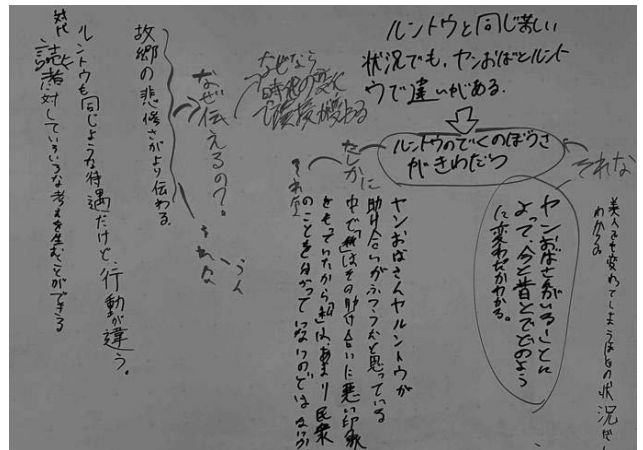 ルントウと同じ苦しい
状況でも、ヤンおばとルント
ウで違いがある。
ルントウのでくのぼうさ
がきわだつ
それな
美人でも変わってしまうほどの状況だと
わかる
ヤンおばさんがいることに
よって、今と昔とでどのよう
に変わたかわかる。
たしかに
それな
ヤンおばさんやルントウが
助け合いがふつうだと思っている
中で「私」はその助け合いに悪い印象
をもっていたから「私」は、あまり民衆
のことを分かっていないのではないか
なぜなら
時代の変化
で環境が変わる
なぜ伝えるの?
うん
それな
故郷の悲惨さがより伝わる
ルントウも同じような待遇だけど、行動が違う。
読者に対していろいろな考えを生むことができる